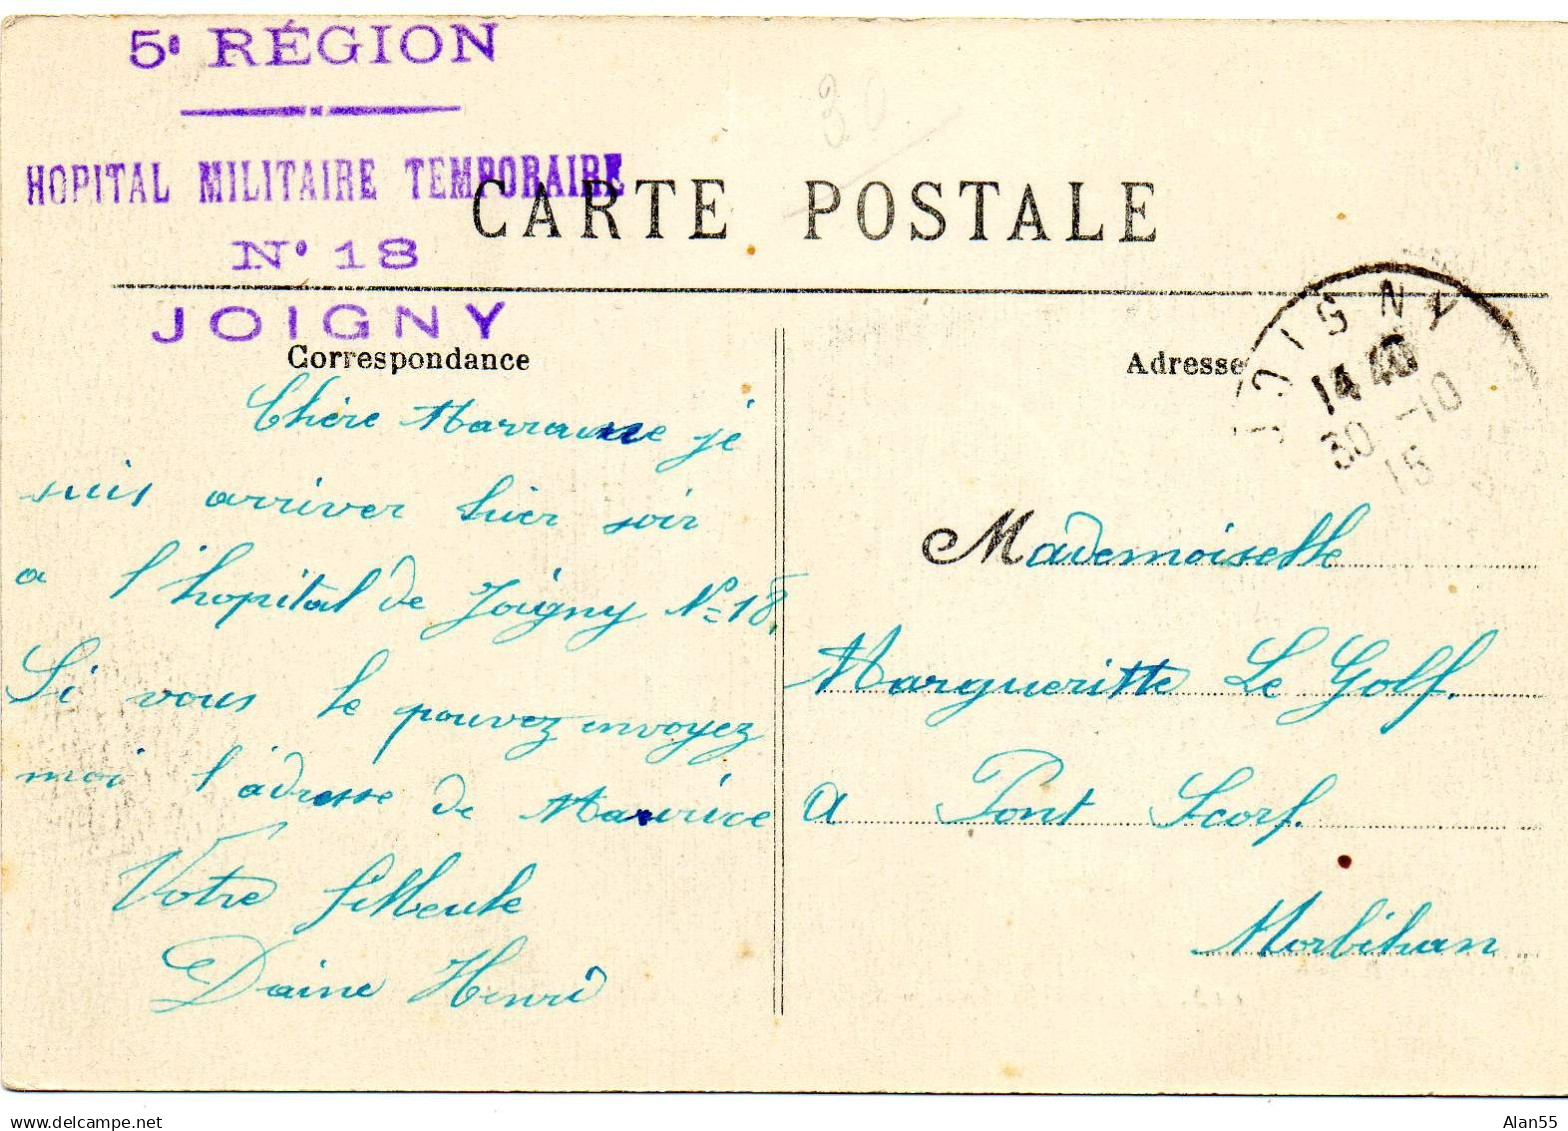 5e RÉGION
HOPITAL MILITAIRE TEMPORAIRE
No 18
JOIGNY
30
CARTE POSTALE
Correspondance
Chère Marraine je
suis arriver hier soir
a l'hopital de Joigny No 18.
Si vous le pouvez envoyez
moi l'adresse de Maurice
Votre filleule
Daine Henri
Adresse
JOIGNY
14 40
30 -10
15
Mademoiselle
Margueritte Le Golf.
a Pont Scorf.
Morbihan
delcampe.net
Alan55